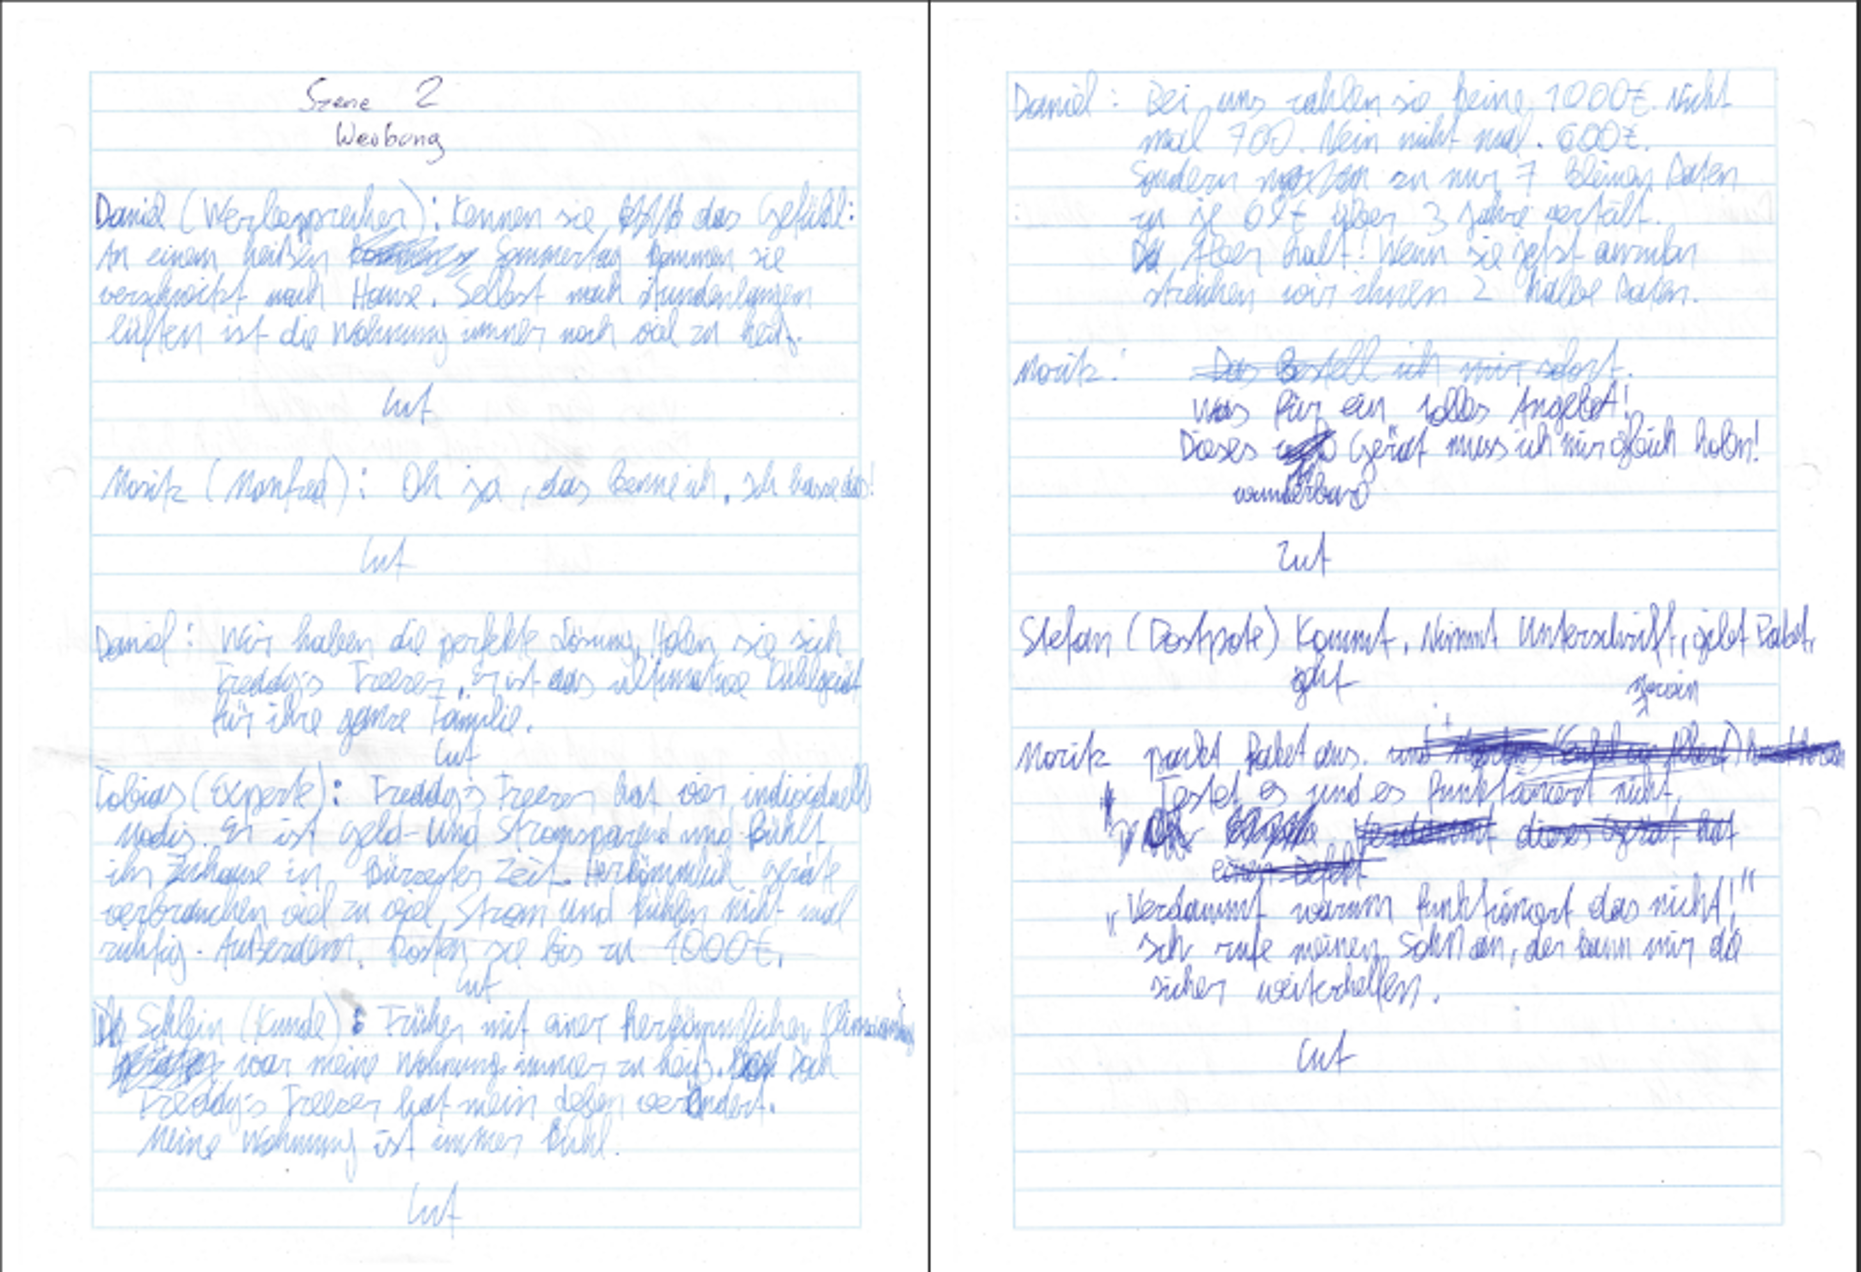 Szene 2
Werbung
Daniel (Werbesprecher): Kennen sie das Gefühl:
An einem heißen Sommertag kommen sie
verschwitzt nach Hause. Selbst nach stundenlangem
lüften ist die Wohnung immer noch viel zu heiß.
Cut
Moritz (Manfred): Oh ja, das kenne ich. Ich hasse das!
Cut
Daniel: Wir haben die perfekte Lösung. Holen sie sich
Freddy's Freezer, er ist das ultimative Kühlgerät
für ihre ganze Familie.
Cut
Tobias (Experte): Freddy's Freezer hat vier individuelle
Modis. Er ist geld- und stromsparend und kühlt
ihr Zuhause in kürzester Zeit. Herkömmlich geräte
verbrauchen viel zu viel Strom und kühlen nicht mal
richtig. Außerdem kosten sie bis zu 1000€.
Cut
Schlein (Kunde): Früher mit einer herkömmlichen
war meine Wohnung immer zu heiß. Doch
Freddy's Freezer hat mein Leben verändert.
Meine Wohnung ist immer kühl.
Cut
Daniel: Bei uns zahlen sie keine 1000€. Nicht
mal 700. Nein nicht mal. 600€.
Sondern zu nur 7 kleinen Raten
zu je über 3 Jahre verteilt.
Aber halt! Wenn sie jetzt anrufen
streichen wir ihnen 2 halbe Raten.
Moritz: Das Bestell ich mir sofort.
Was für ein tolles Angebot!
Dieses Gerät muss ich mir gleich holen!
wunderbare
Cut
Stefan (Postbote) Kommt, Nimmt Unterschrift, gibt Paket,
geht
Moritz packt Paket aus. und
Testet es und es funktioniert nicht.
Verdammt dieses Gerät hat
einen defekt
„Verdammt warum funktioniert das nicht!"
Ich rufe meinen Sohn an, der kann mir da
sicher weiterhelfen.
Cut